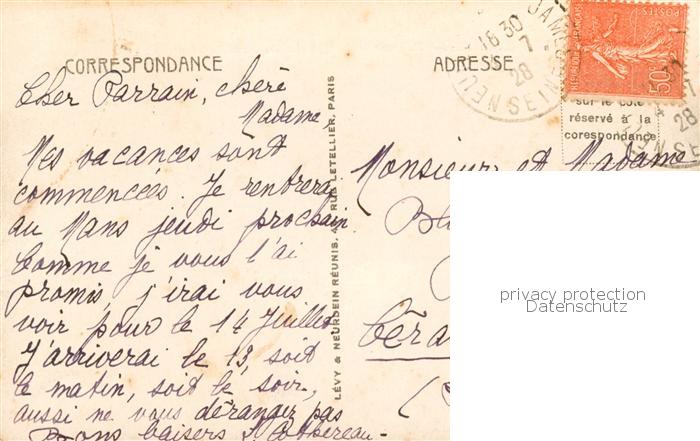 CORRESPONDANCE
Cher Parrain, chère
Madame,
Mes vacances sont
commencées. Je rentrerai
au Mans jeudi prochain
Comme je vous l'ai
promis, j'irai vous
voir pour le 14 Juillet
J'arriverai le 13, soit
le matin, soit le soir,
aussi ne vous déranger pas
Bons baisers
LÉVY & NEURDEIN RÉUNIS, 44, RUE LETELLIER, PARIS
ADRESSE
POSTES
50
16 30
7
28
SEINE
sur le côté
réservé à la
corespondance
7
28
Monsieur et Madame
privacy protection
Datenschutz